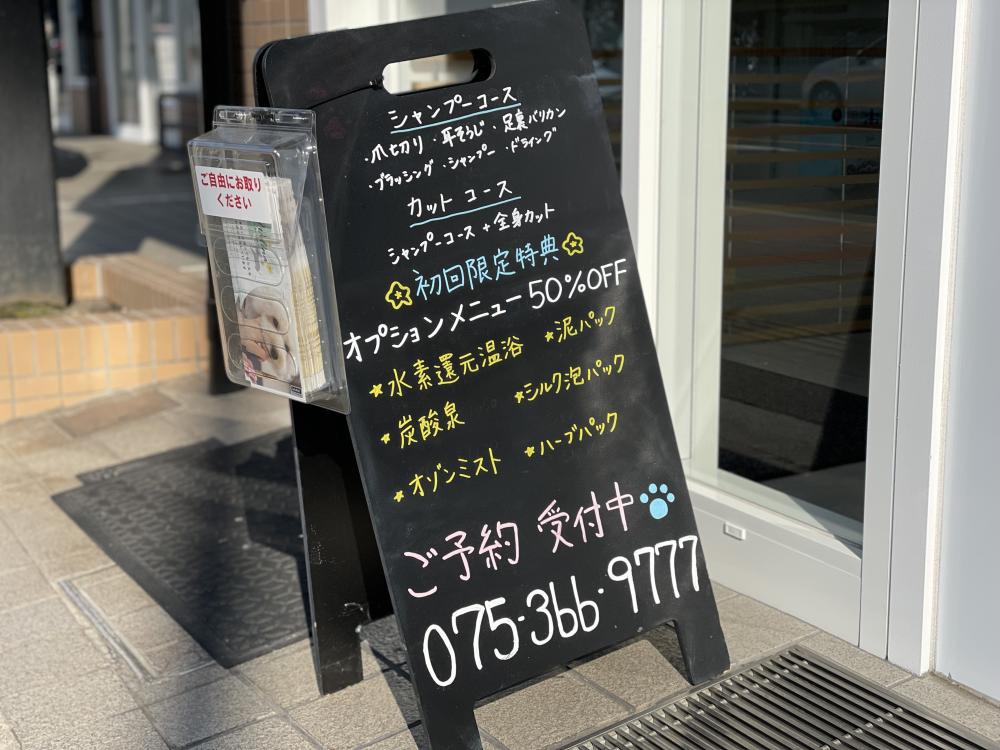 シャンプーコース
・爪切り・耳そうじ・足裏バリカン
・ブラッシング・シャンプー・ドライング
カット コース
シャンプーコース + 全身カット
初回限定特典
オプションメニュー 50%OFF
★水素還元温浴 ★泥パック
★炭酸泉 ★シルク泡パック
★オゾンミスト ★ハーブパック
ご予約 受付中
075-366-9777
ご自由にお取り
ください